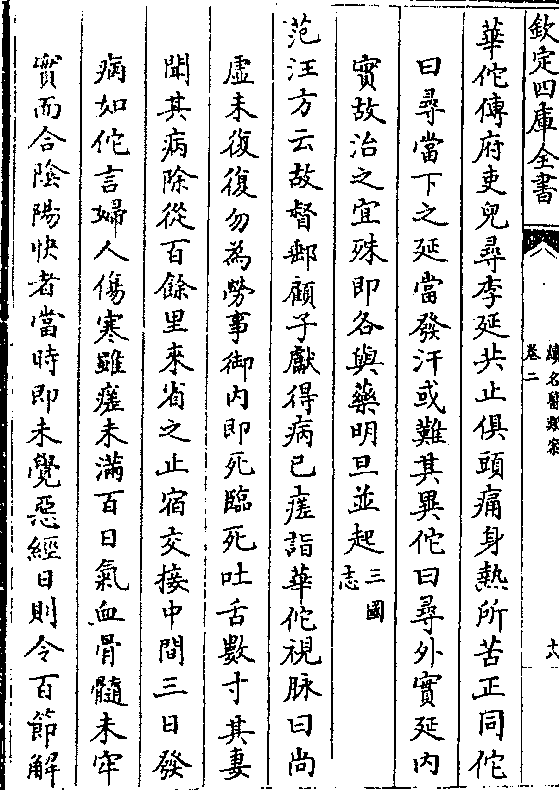 欽定四庫全書
續名醫類案
卷二
六
華佗傳府吏兒尋李延共止俱頭痛身熱所苦正同佗
曰尋當下之延當發汗或難其異佗曰尋外實延內
實故治之宜殊即各與藥明旦並起三國志
范汪方云故督郵顧子獻得病已瘥詣華佗視脉曰尚
虛未復復勿為勞事御內即死臨死吐舌數寸其妻
聞其病除從百餘里來省之止宿交接中間三日發
病如佗言婦人傷寒雖瘥未滿百日氣血骨髓未牢
實而合陰陽快者當時即未覺惡經日則令百節解